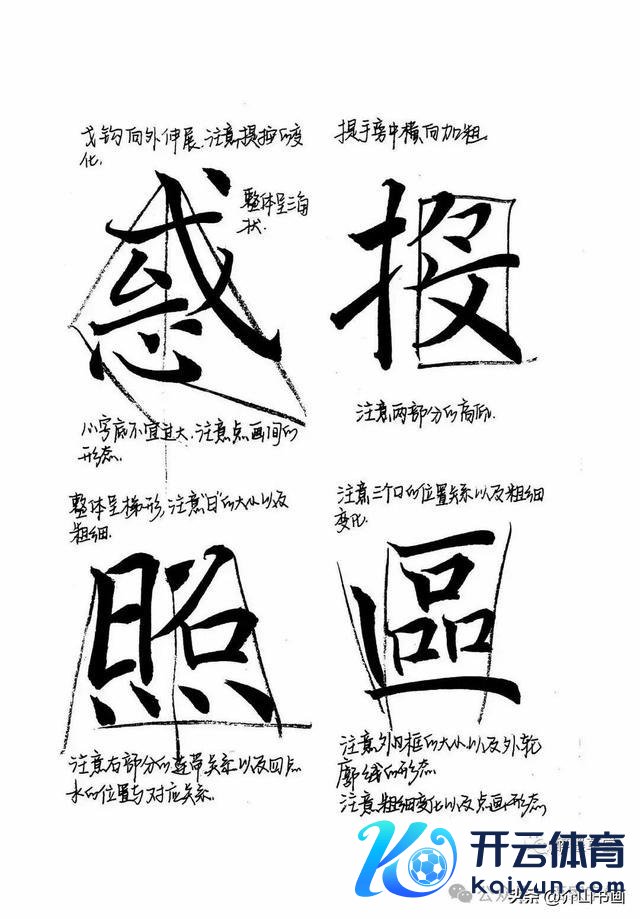 戈钩向外伸展.注意提按的变
化.
整体呈三角
状.
惑
心字底不宜过大.注意点画间的
形态.
提手旁中横向加粗.
投
注意两部分的高低.
整体呈梯形,注意"日"的大小以及
粗细.
照
注意右部分的连带关系以及四点
水的位置与对应关系.
注意三个口的位置关系以及粗细
变化.
區
注意外口框的大小以及外轮
廓线的形态.
注意粗细变化以及点画形态
开云体育
kaiyun.com
公众
头条@介山书画